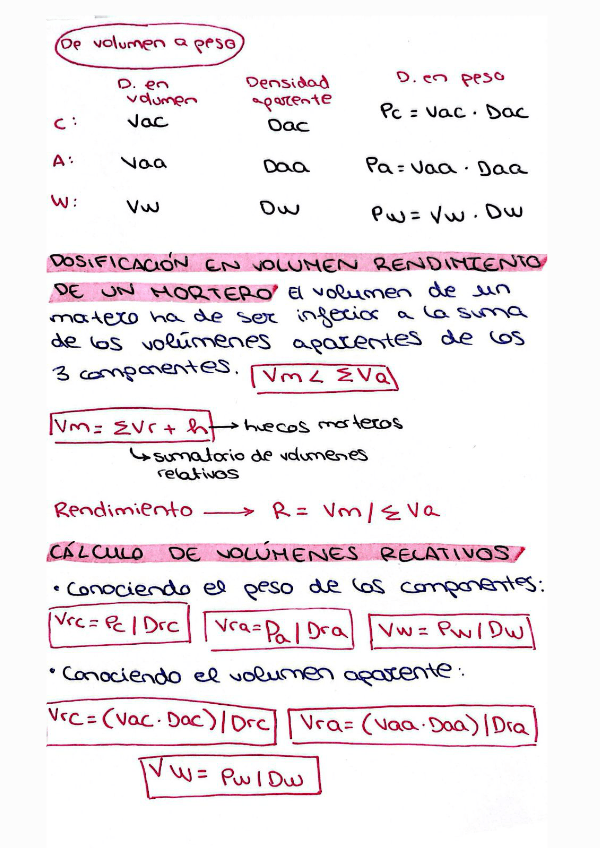 De volumen a peso
D. en volumen Densidad aparente D. en peso
C: Vac Dac Pc = Vac · Dac
A: Vaa Daa Pa = Vaa · Daa
W: Vw Dw Pw = Vw · Dw
DOSIFICACIÓN EN VOLUMEN RENDIMIENTO
DE UN MORTERO El volumen de un
mortero ha de ser inferior a la suma
de los volúmenes aparentes de los
3 componentes. Vm < ΣVa
Vm = ΣVr + h → huecos morteros
↳ sumatorio de volumenes
relativos
Rendimiento → R = Vm / ΣVa
CÁLCULO DE VOLÚMENES RELATIVOS
· Conociendo el peso de los componentes:
Vrc = Pc / Drc Vra = Pa / Dra Vw = Pw / Dw
· Conociendo el volumen aparente:
Vrc = (Vac · Dac) / Drc Vra = (Vaa · Daa) / Dra
Vw = Pw / Dw